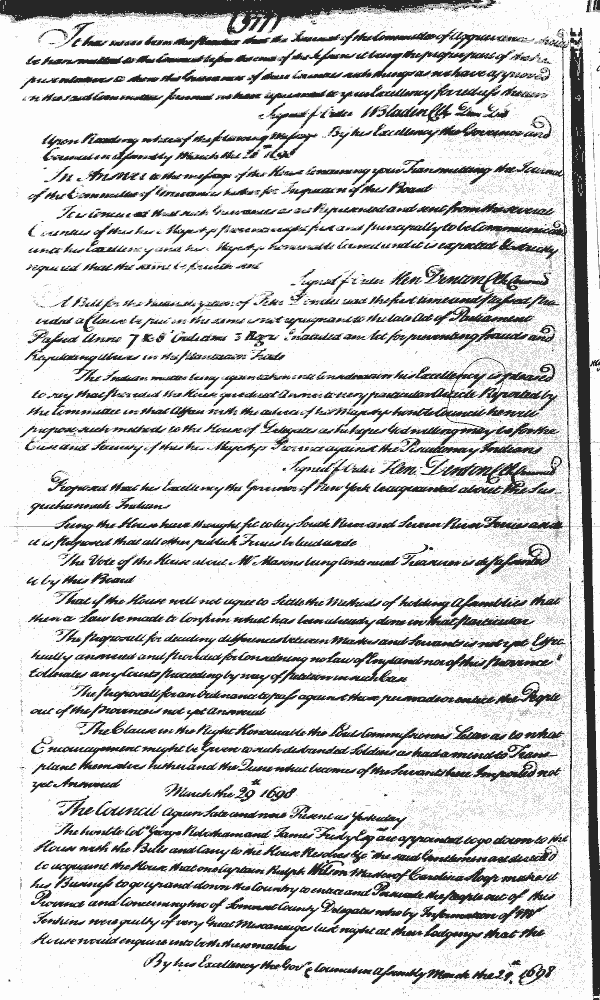 (577)
It has never been the practice that the Journal of the Committee of Aggrievances should
be transmitted to the Council before the end of the Sessions it being the proper part of the
presentatives to shew the Grievances of their Counties such things as we have approved
in the said Committees Journal we have represented to your Excellency for redress therein
Signed p Order WBladen Clk
Upon Reading whereof the following Message By his Excellency the Governor and
Council in Assembly March the 28th 1698
In Answer to the message of the House Concerning your Transmitting the Journal
of the Committee of Grievances hither for Inspection of this Board
It is Conceived that such Grievances as are Represented and sent from the several
Counties of this his Majestys Province ought first and principally to be Communicated
unto his Excellency and his Majestys honorable Council and it is expected & directly
required that the same be forthwith sent
Signed p Order Hen. Denton Clk Council
A Bill for the Naturalization of Peter read the first time and passed pro
vided a Clause be put in the same not repugnant to the late Act of Parliament
Passed Anno 7 & 8 Gulielmi 3 Regis Intituled an Act for preventing frauds and
Regulating Abuses in the Plantation Trade
The Indian matter being again taken into Consideration his Excellency is pleased
to say that provided the House produced Answer to every particular Article Reported by
the Committee in that Affair with the advice of his Majestys honble Council he will
propose such methods to the House of Delegates as he hopes God willing may be for the
Ease and Security of this his Majestys Province against the Piscattaway Indians
Signed p Order Hen. Denton Clk Council
Proposed that his Excellency the Governor of New York be acquainted about the Sus-
quehannah Indians
Seing the House have thought fit to lay South River and Severn River Ferries aside
it is proposed that all other publick Ferries be laid aside
The Vote of the House about Mr Masons being Continued Treasurer is dissassented
to by this Board
That if the House will not agree to Settle the Methods of holding Assemblies that
then a Law be made to Confirm what has been already done in that particular
The proposall for deciding differences between Masters and Servants is not yet Effec-
tually answered and provided for Considering no Law of England nor of this Province
tolerates any Courts proceeding by way of petition in such Case
The proposall for an Ordinance to pass against those persuade or entice the People
out of the Province is not yet Answered
The Clause in the Right Honourable the Lords Commissioners Letter as to what
Encouragement might be Given to such disbanded Soldiers as had a mind to Trans-
plant themselves hither and the Quere what becomes of the Servants here Imported not
yet Answered
March the 29th 1698
The Council again Sate and were Present as Yesterday
The honble Col George Robotham and James Frisby Esqrs are appointed to go down to the
House with the Bills and Carry to the House Resolves &c the said Gentlemen are desired
to acquaint the House, that one Captain Ralph Wilson Master of Carolina Sloop makes it
his Business to go up and down the Country to entice and Persuade the people out of this
Province and Concerning two of Somerset County Delegates who by Information of Mr
Jenkins were guilty of very Great Miscarriages last night at their lodgings that the
House would enquire into both these matters
By his Excellency the Govr & Council in Assembly March the 29th 1698